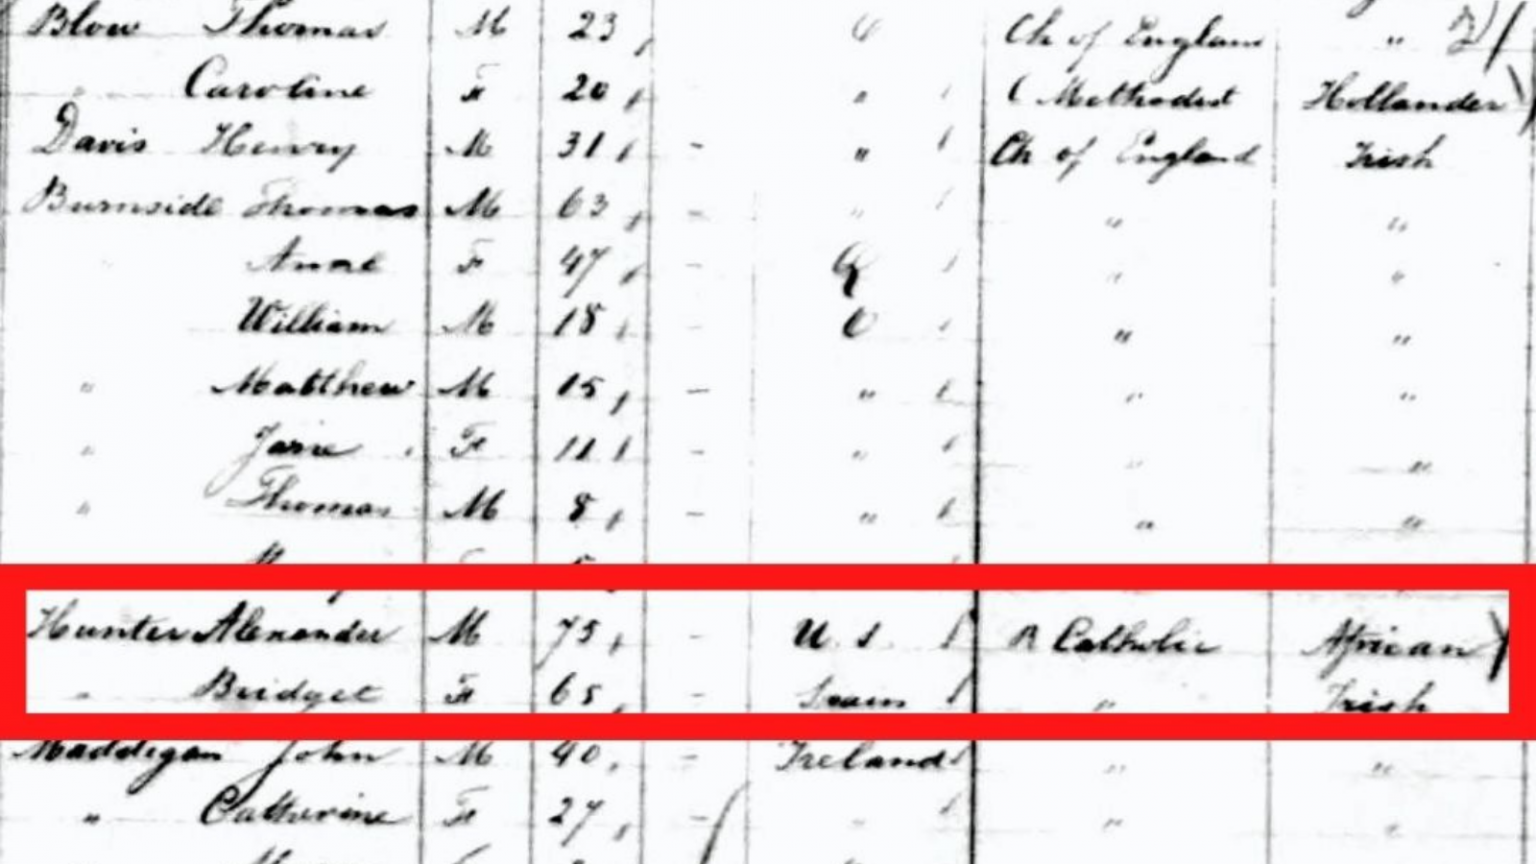 Blow Thomas M 23 O Ch of England "
" Caroline F 20 " Methodist Hollander
Davis Henry M 31 - " Ch of England Irish
Burnside Thomas M 63 - " " "
" Anne F 47 - Q " "
William M 18 - O " "
" Matthew M 15 - " " "
" Jane F 11 - " " "
" Thomas M 8 - " " "
Hunter Alexander M 75 - U. S. R Catholic African
" Bridget F 65 - Spain " Irish
Maddigan John M 40 - Ireland " "
" Catherine F 27 - " " "